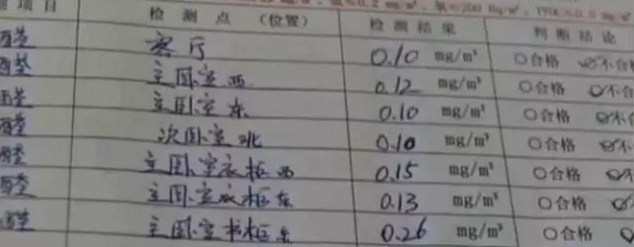 项目 检测点（位置） 检测结果 判断结论
客厅 0.10 mg/m³ 〇合格 不合
主卧室西 0.12 mg/m³ 〇合格 不合
主卧室东 0.10 mg/m³ 〇合格 不
次卧室北 0.10 mg/m³ 〇合格 不
主卧室衣柜西 0.15 mg/m³ 〇合格 不
主卧室衣柜东 0.13 mg/m³ 〇合格 不
主卧室书柜东 0.26 mg/m³ 〇合格